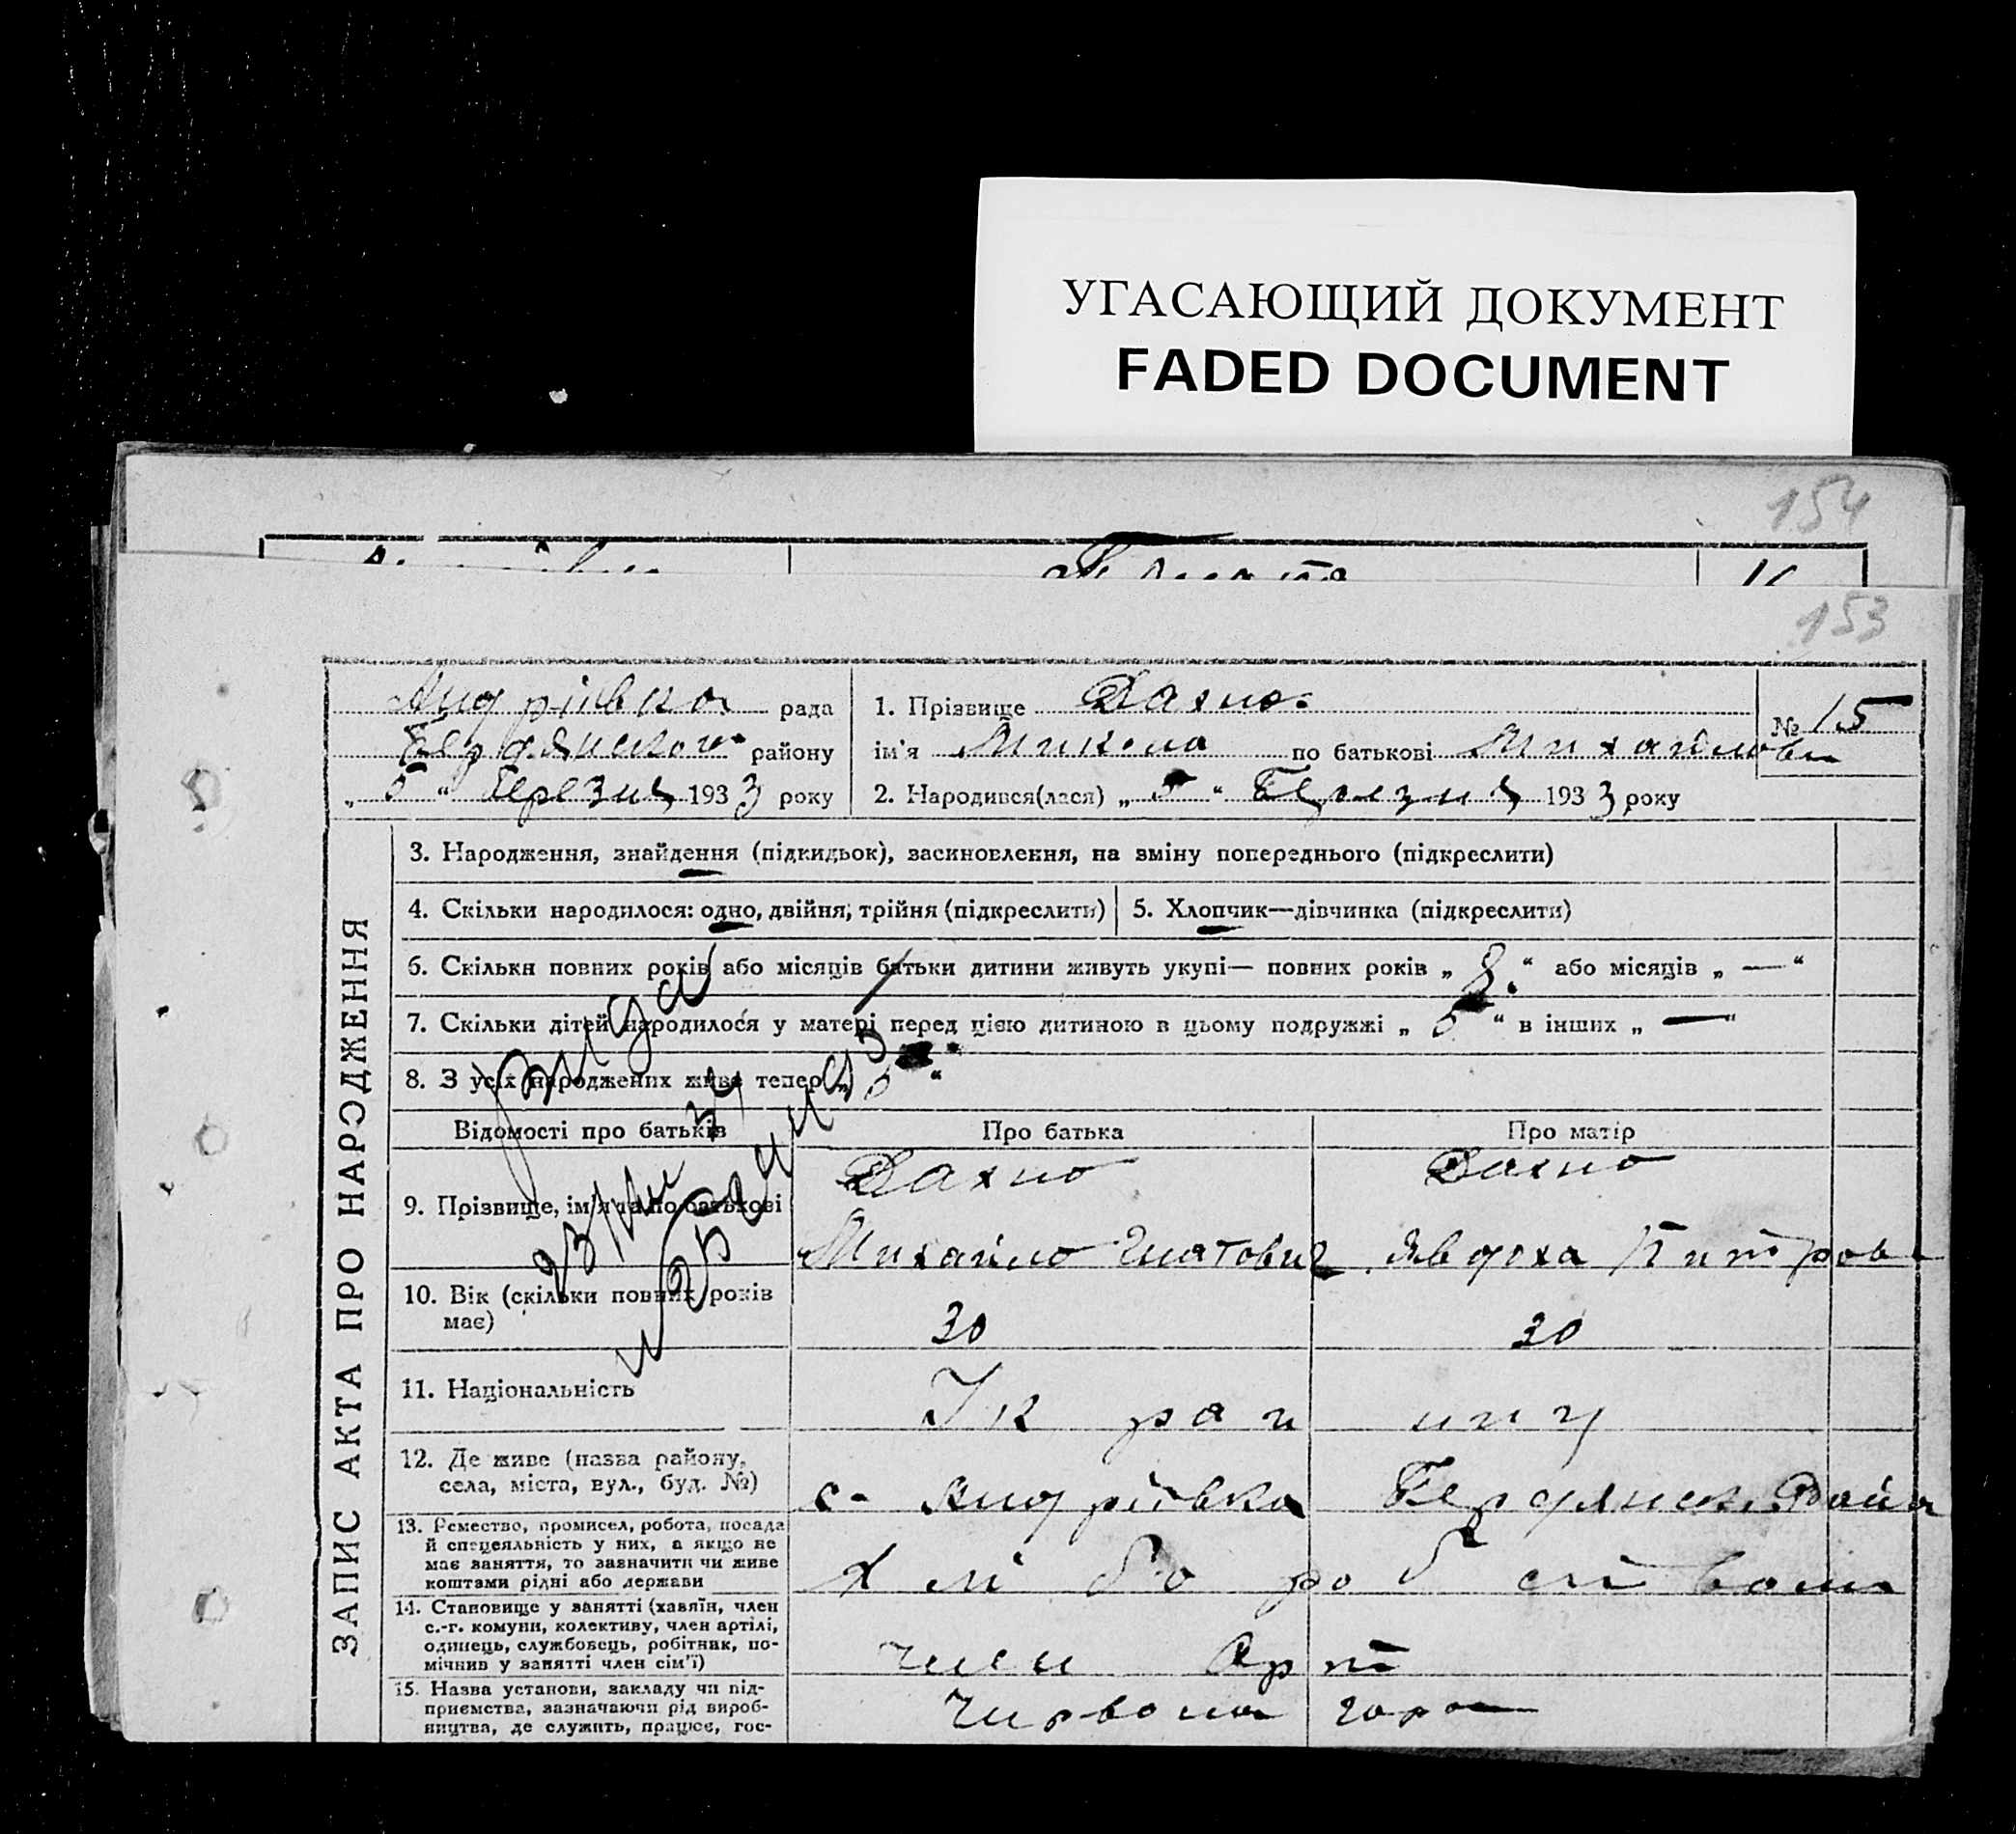 УГАСАЮЩИЙ ДОКУМЕНТ
FADED DOCUMENT
154
153
Андріівка рада
Бердянского району
„ 5 “ Березня 1933 року
1. Прізвище Дахно.
ім'я Микола по батькові Михайлови
№ 15
2. Народився(лася) „ 5 “ Березня 1933 року
ЗАПИС АКТА ПРО НАРОДЖЕННЯ
3. Народження, знайдення (підкидьок), засиновлення, на зміну попереднього (підкреслити)
4. Скільки народилося: одно, двійня, трійня (підкреслити)
5. Хлопчик—дівчинка (підкреслити)
6. Скільки повних років або місяців батьки дитини живуть укупі— повних років „ 8. “ або місяців „ — “
7. Скільки дітей народилося у матері перед цією дитиною в цьому подружжі „ “ в інших „ — “
8. З усіх народжених живе тепер „ “
Відомості про батьків
Про батька
Про матір
9. Прізвище, ім'я та по батькові
Дахно
Дахно
Михайло Гнатович
Явдоха Питров
10. Вік (скільки повних років
має)
30
30
11. Національність
Украинцу
12. Де живе (назва району,
села, міста, вул., буд. №)
с. Андріівка Бердянск. Райа
13. Ремество, промисел, робота, посада
й спецеяльність у них, а якщо не
має заняття, то зазначити чи живе
коштами рідні або держави
Хліборобство
14. Становище у занятті (хазяїн, член
с.-г. комуни, колективу, член артілі,
одинець, службовець, робітнак, по-
мічнив у занятті член сім'ї)
член Арт
15. Назва установи, закладу чи під-
приємства, зазначаючи рід вироб-
ництва, де служить, працює, гос-
Чирвона гора